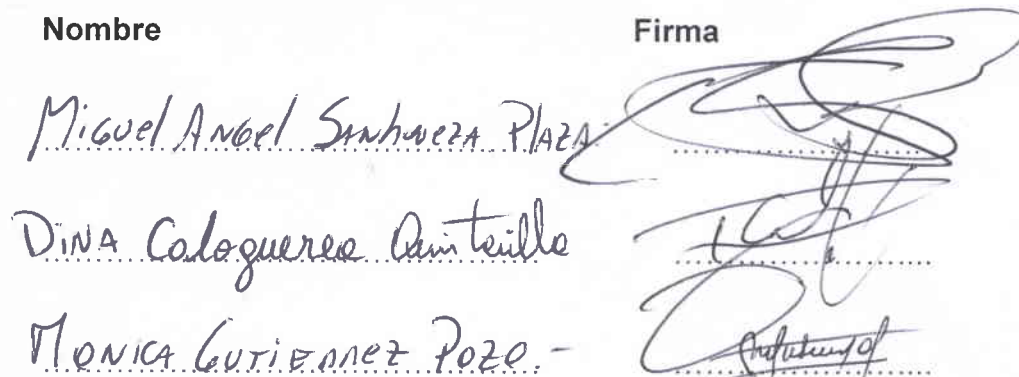 Nombre Firma
Miguel Angel Sanhueza Plaza.
Dina Caloguerea Quintanilla
Monica Gutierrez Pozo.-